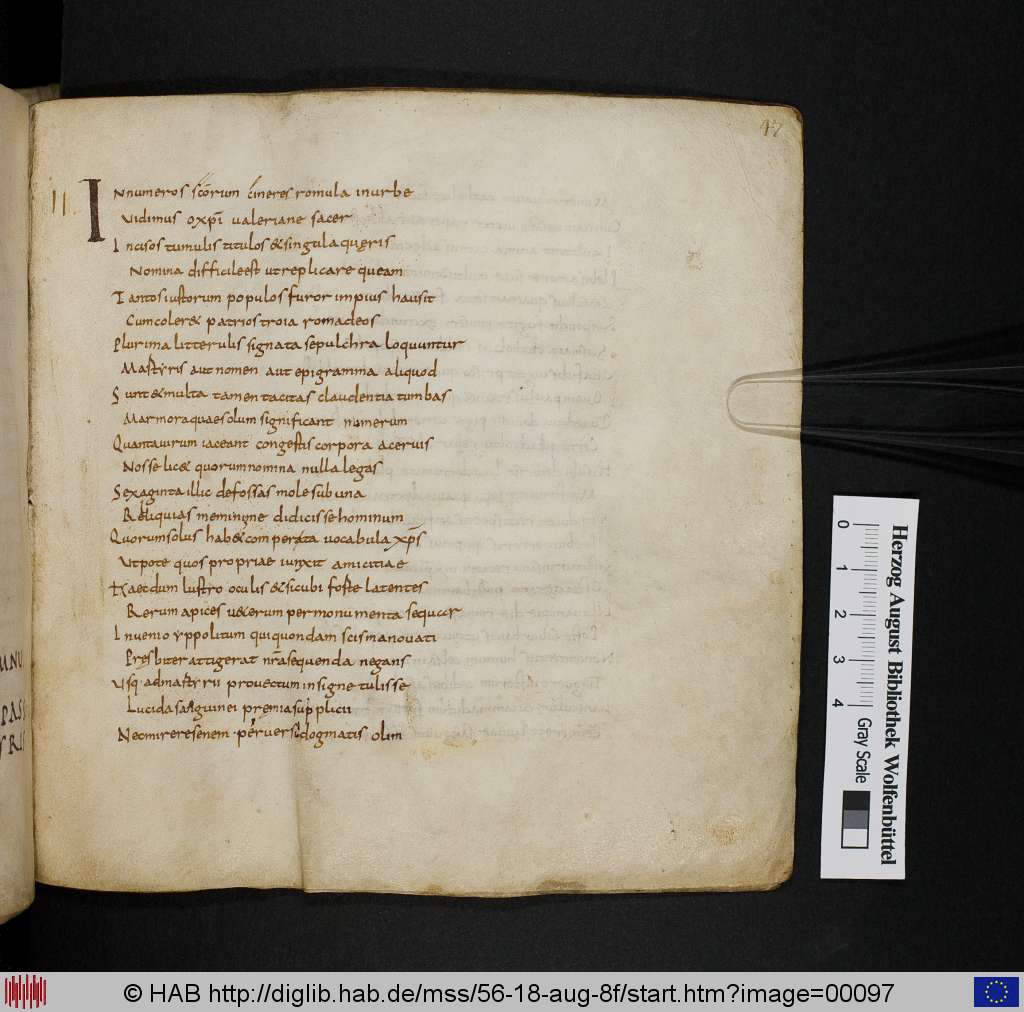 47
II. Innumeros scōrum cineres romula inurbe
Vidimus oxpī ualeriane sacer
Incisos tumulis titulos &singula quęris
Nomina difficileest utreplicare queam
Tantosiustorum populosfuror impius hausit
Cumcoler& patriostroia romadeos
Plurima litterulis signata sepulchra loquuntur
Martyris aut nomen aut epigramma aliquod
Sunt&multa tamen tacitas claudentia tumbas
Marmoraquaesolum significant numerum
Quantauirum iaceant congestis corpora aceruis
Nosse lic& quorumnomina nulla legas
Sexaginta illic defossas mole sub una
Reliquias memini me didicisse hominum
Quorumsolus hab&comperata uocabula xp̄s
Utpote quos propriae iunxit amicitiae
Haecdum lustro oculis &sicubi forte latentes
Rerum apices u&erum permonumenta sequor
Inuenio yppolitum qui quondam scismanouati
Presbiter attigerat nr̄asequenda negans
Usq; admartyrii prouectum insigne tulisse
Lucida sanguinei premia supplicii
Necmireresenem peruersi dogmatis olim
Herzog August Bibliothek Wolfenbüttel
0 1 2 3 4 Gray Scale
© HAB http://diglib.hab.de/mss/56-18-aug-8f/start.htm?image=00097